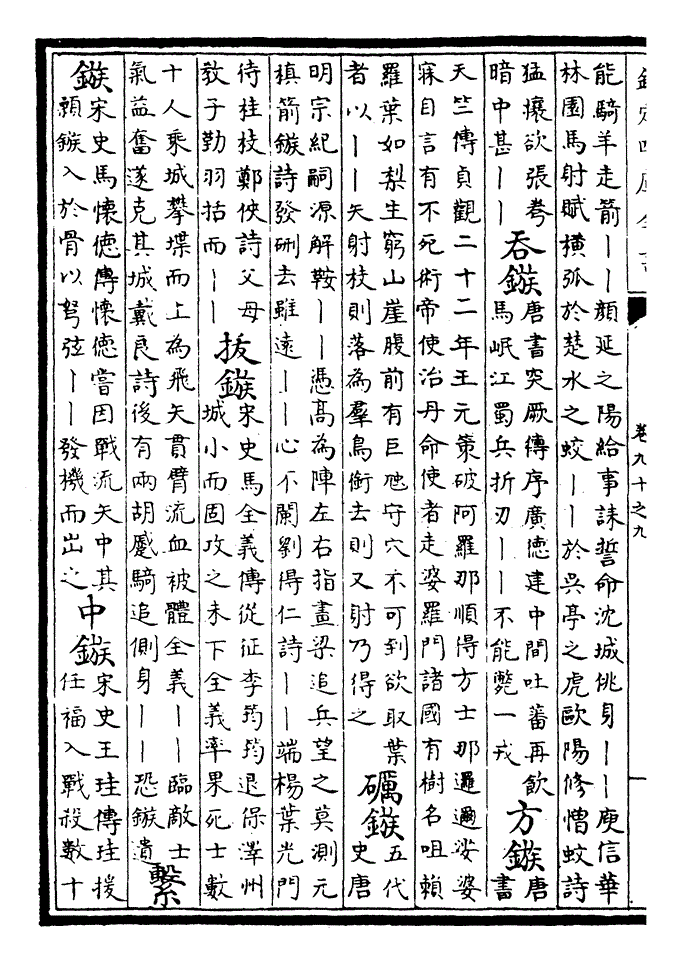 欽定四庫全書
卷九十之九
能騎羊走箭｜｜顔延之陽給事誄誓命沈城佻身｜｜庾信華
林園馬射賦横弧於楚水之蛟｜｜於吳亭之虎歐陽修憎蚊詩
猛攘欲張拳
暗中甚｜｜
吞鏃
唐書突厥傳序廣德建中間吐蕃再飲
馬岷江蜀兵折刃｜｜不能斃一戎
方鏃
唐
書
天竺傳貞觀二十二年王元策破阿羅那順得方士那邏邇娑婆
寐自言有不死術帝使治丹命使者走婆羅門諸國有樹名咀賴
羅葉如梨生窮山崖腹前有巨虺守穴不可到欲取葉
者以｜｜矢射枝則落為羣鳥銜去則又射乃得之
礪鏃
五代
史唐
明宗紀嗣源解鞍｜｜憑髙為陣左右指畫梁追兵望之莫測元
槙箭鏃詩發硎去雖遠｜｜心不闌劉得仁詩｜｜端楊葉光門
待桂枝鄭俠詩父母
教子勤羽括而｜｜
拔鏃
宋史馬全義傳從征李筠筠退保澤州
城小而固攻之未下全義率果死士數
十人乘城攀堞而上為飛矢貫臂流血被體全義｜｜臨敵士
氣益奮遂克其城戴良詩後有兩胡蹙騎追側身｜｜恐鏃遺
繫
鏃
宋史馬懷徳傳懷徳嘗因戰流矢中其
顙鏃入於骨以弩弦｜｜發機而出之
中鏃
宋史王珪傳珪援
任福入戰殺數十